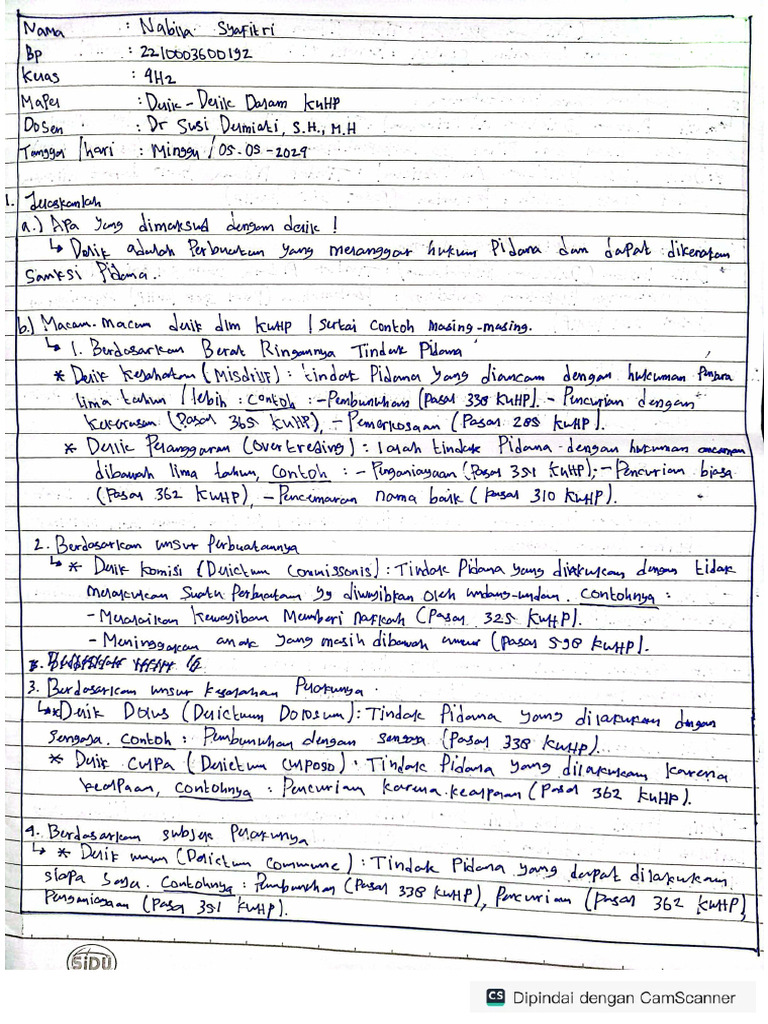 Nama : Nabila Syafitri
Bp : 2210003600192
Kelas : 4H2
Mapel : Delik-Delik Dalam KUHP
Dosen : Dr Susi Delmiati, S.H., M.H
Tanggal /hari : Minggu /05-05-2024
1. Jelaskanlah
a.) Apa yang dimaksud dengan delik !
↳ Delik adalah Perbuatan yang melanggar hukum Pidana dan dapat dikenakan
Sanksi Pidana.
b.) Macam-macam delik dlm KUHP / sertai contoh masing-masing.
↳ 1. Berdasarkan Berat Ringannya Tindak Pidana
* Delik Kejahatan (Misdrijf) : tindak Pidana yang diancam dengan hukuman Penjara
lima tahun / lebih : Contoh : - Pembunuhan (Pasal 338 KUHP). - Pencurian dengan
kekerasan (Pasal 365 KUHP), - Pemerkosaan (Pasal 285 KUHP).
* Delik Pelanggaran (Overtreding) : ialah tindak Pidana dengan hukuman ancaman
dibawah lima tahun, Contoh : - Penganiayaan (Pasal 351 KUHP); - Pencurian biasa
(Pasal 362 KUHP), - Pencemaran nama baik (Pasal 310 KUHP).
2. Berdasarkan unsur Perbuatannya
↳ * Delik Komisi (Delictum Commissonis) : Tindak Pidana yang dilakukan dengan tidak
melakukan Suatu Perbuatan yg diwajibkan oleh undang-undan. Contohnya :
- Melalaikan Kewajiban Memberi nafkah (Pasal 325 KUHP).
- Meninggalkan anak yang masih dibawah umur (Pasal 598 KUHP).
3. Berdasarkan unsur Kesalahan Pelakunya.
↳ * Delik Dolus (Delictum Dolosum) : Tindak Pidana yang dilakukan dngan
sengaja. Contoh : Pembunuhan dengan sengaja (Pasal 338 KUHP).
* Delik Culpa (Delictum culposo) : Tindak Pidana yang dilakukan karena
kealpaan, Contohnya : Pencurian karena kealpaan (Pasal 362 KUHP).
4. Berdasarkan subjek Pelakunya
↳ * Delik umum (Delictum commune) : Tindak Pidana yang dapat dilakukan
siapa saja. Contohnya : Pembunuhan (Pasal 338 KUHP), Pencurian (Pasal 362 KUHP),
Penganiayaan (Pasal 351 KUHP).
SIDU
CS Dipindai dengan CamScanner